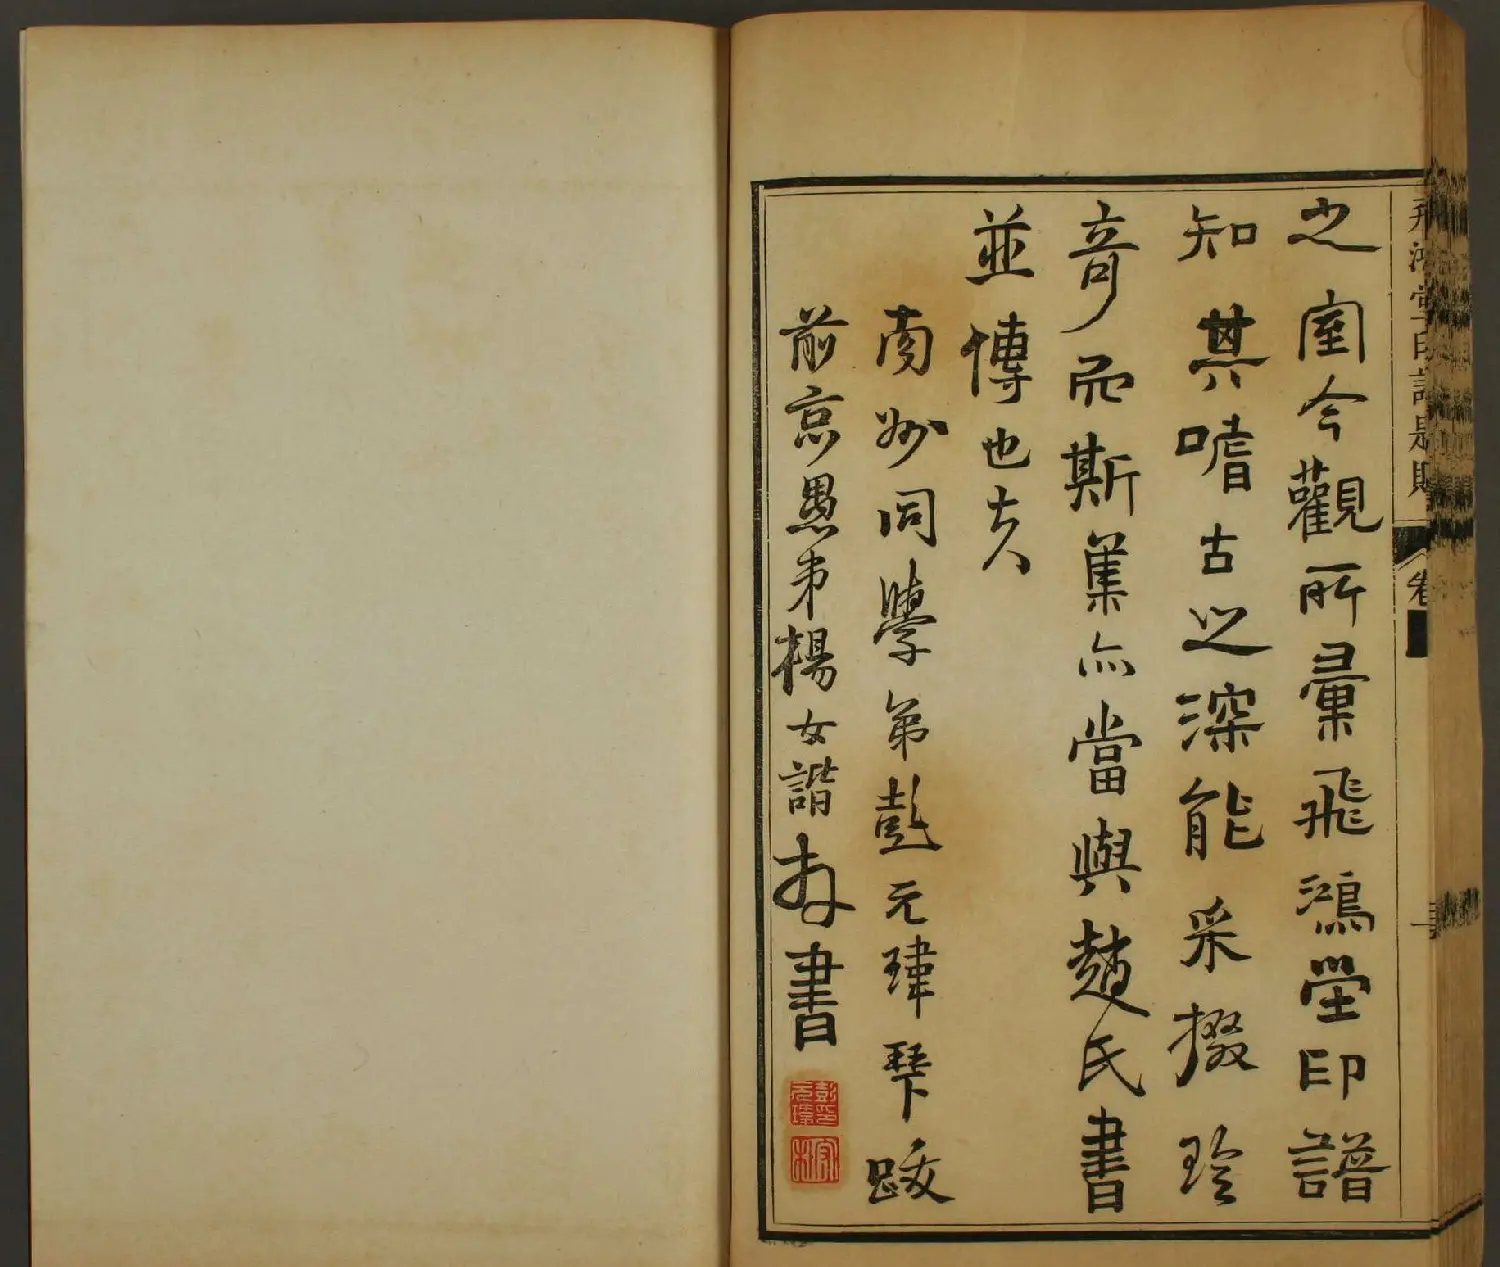 飛鴻堂印譜
卷
之室今觀所彙飛鴻堂印譜
知其嗜古之深能采掇珍
竒而斯集亦當與趙氏書
並傳也夫
南同學弟彭元瑋琹下跋
前京愚弟楊女諧拜書
彭印元瑋